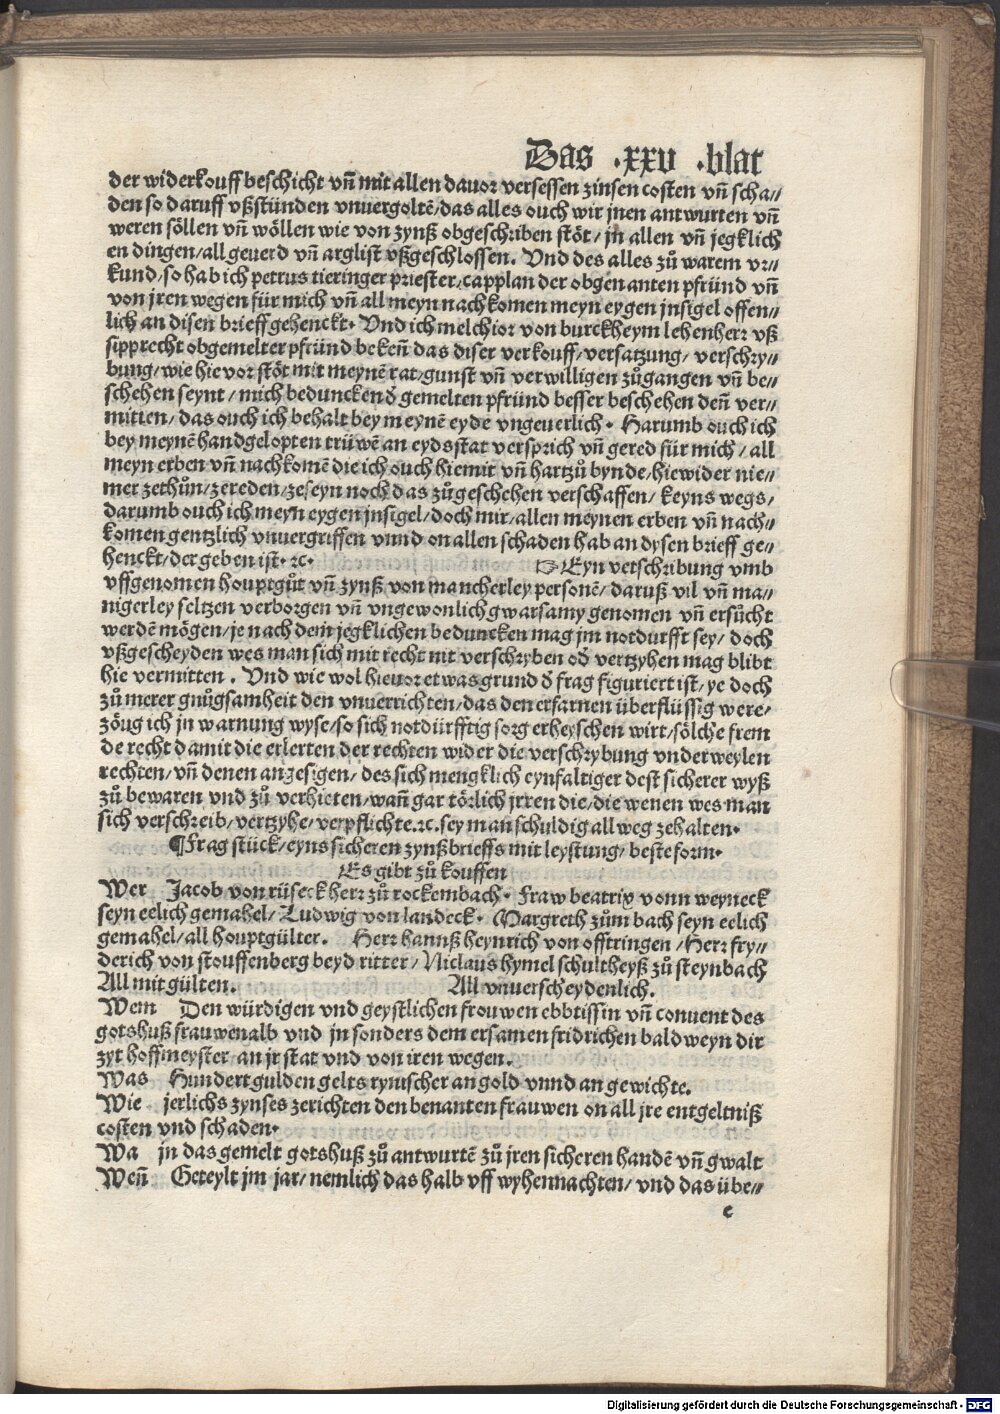 Das .xxv .blat
der widerkouff beschicht vn̄ mit allen dauor versessen zinsen costen vn̄ scha⸗
den so daruff vßstünden vnuergoltē/das alles ouch wir jnen antwurten vn̄
weren söllen vn̄ wöllen wie von zynß obgeschriben stöt/ jn allen vn̄ jegklich
en dingen/all geuerd vn̄ arglist vßgeschlossen. Vnd des alles zů warem vr⸗
kund/so hab ich petrus tieringer priester/capplan der obgenanten pfründ vn̄
von jren wegen für mich vn̄ all meyn nachkomen meyn eygen jnsigel offen⸗
lich an disen brieff gehenckt. Vnd ich melchior von burckheym lehenherr vß
sipprecht obgemelter pfründ beken̄ das diser verkouff/versatzung/ verschry⸗
bung/wie hie vor stöt mit meynē rat/gunst vn̄ verwilligen zůgangen vn̄ be⸗
schehen seynt/ mich beduncken đ gemelten pfründ besser beschehen den̄ ver⸗
mitten/ das ouch ich behalt bey meynē eyde vngeuerlich. Harumb ouch ich
bey meynē handgelopten trüwē an eydsstat versprich vn̄ gered für mich/ all
meyn erben vn̄ nachkomē die ich ouch hiemit vn̄ hartzů bynde/hiewider nie⸗
mer zethůn/zereden/zeseyn noch das zůgeschehen verschaffen/ keyns wegs/
darumb ouch ich meyn eygen jnsigel/doch mir/allen meynen erben vn̄ nach⸗
komen gentzlich vnuergriffen vnnd on allen schaden hab an dysen brieff ge⸗
henckt/der geben ist. ꝛc. ☞Eyn verschribung vmb
vffgenomen houptgůt vn̄ zynß von mancherley personē/ daruß vil vn̄ ma⸗
nigerley seltzen verborgen vn̄ vngewonlich gwarsamy genomen vn̄ ersůcht
werdē mögen/je nach dem jegklichen beduncken mag jm notdurfft sey/ doch
vßgescheyden wes man sich mit recht nit verschryben ođ vertzyhen mag blibt
hie vermitten. Vnd wie wol hieuor etwas grund đ frag figuriert ist/ye doch
zů merer gnůgsamheit den vnuerrichten/das den erfarnen überflüssig were/
zöug ich jn warnung wyse/so sich notdürfftig sorg erheyschen wirt/sölche frem
de recht damit die erlerten der rechten wider die verschrybung vnderweylen
rechten/vn̄ denen angesigen/des sich mengklich eynfaltiger dest sicherer wyß
zů bewaren vnd zů verhieten/wan̄ gar törlich jrren die/die wenen wes man
sich verschreib/vertzyhe/verpflichte.ꝛc.sey man schuldig all weg zehalten.
¶Frag stück/eyns sicheren zynßbrieffs mit leystung/ beste form.
Es gibt zů kouffen
Wer Jacob von rüseck herr zů rockembach. Fraw beatrix vonn weyneck
seyn eelich gemahel/Ludwig von landeck. Margreth zům bach seyn eelich
gemahel/all houptgülter. Herr hannß heynrich von offtringen/Herr fry⸗
derich von stouffenberg beyd ritter/Niclaus hymel schultheyß zů steynbach
All mit gülten. All vnuerscheydenlich.
Wem Den würdigen vnd geystlichen frouwen ebbtissin vn̄ conuent des
gotshuß frauwenalb vnd jn sonders dem ersamen fridrichen baldweyn dir
zyt hoffmeyster an jr stat vnd von iren wegen.
Was Hundert gulden gelts rynischer an gold vnnd an gewichte.
Wie jerlichs zynses zerichten den benanten frauwen on all jre entgeltniß
costen vnd schaden.
Wa jn das gemelt gotshuß zů antwurtē zů jren sicheren handē vn̄ gwalt
Wen̄ Geteylt jm jar/nemlich das halb vff wyhennachten/ vnd das übe⸗
e
Digitalisierung gefördert durch die Deutsche Forschungsgemeinschaft - DFG